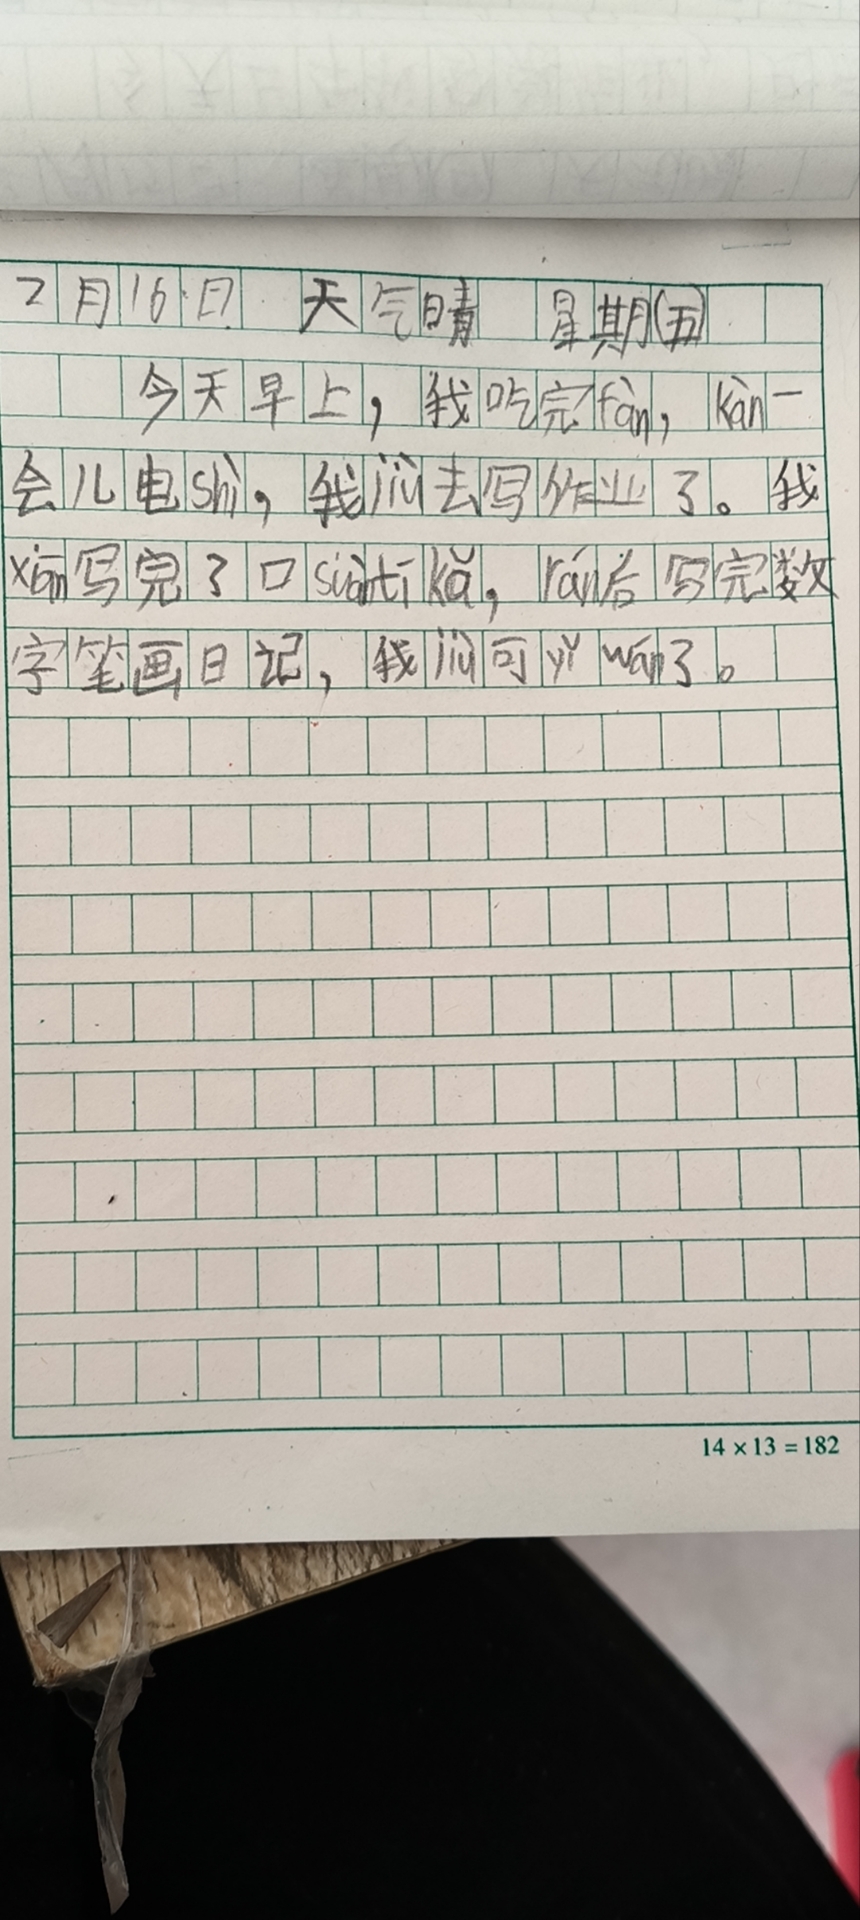 2月16日 天气晴 星期(五)
今天早上，我吃完fàn，kàn一
会儿电shì，我jiù去写作业了。我
xiān写完了口suàntíkǎ，rán后写完数
字笔画日记，我jiù可yǐwán了。
14×13=182